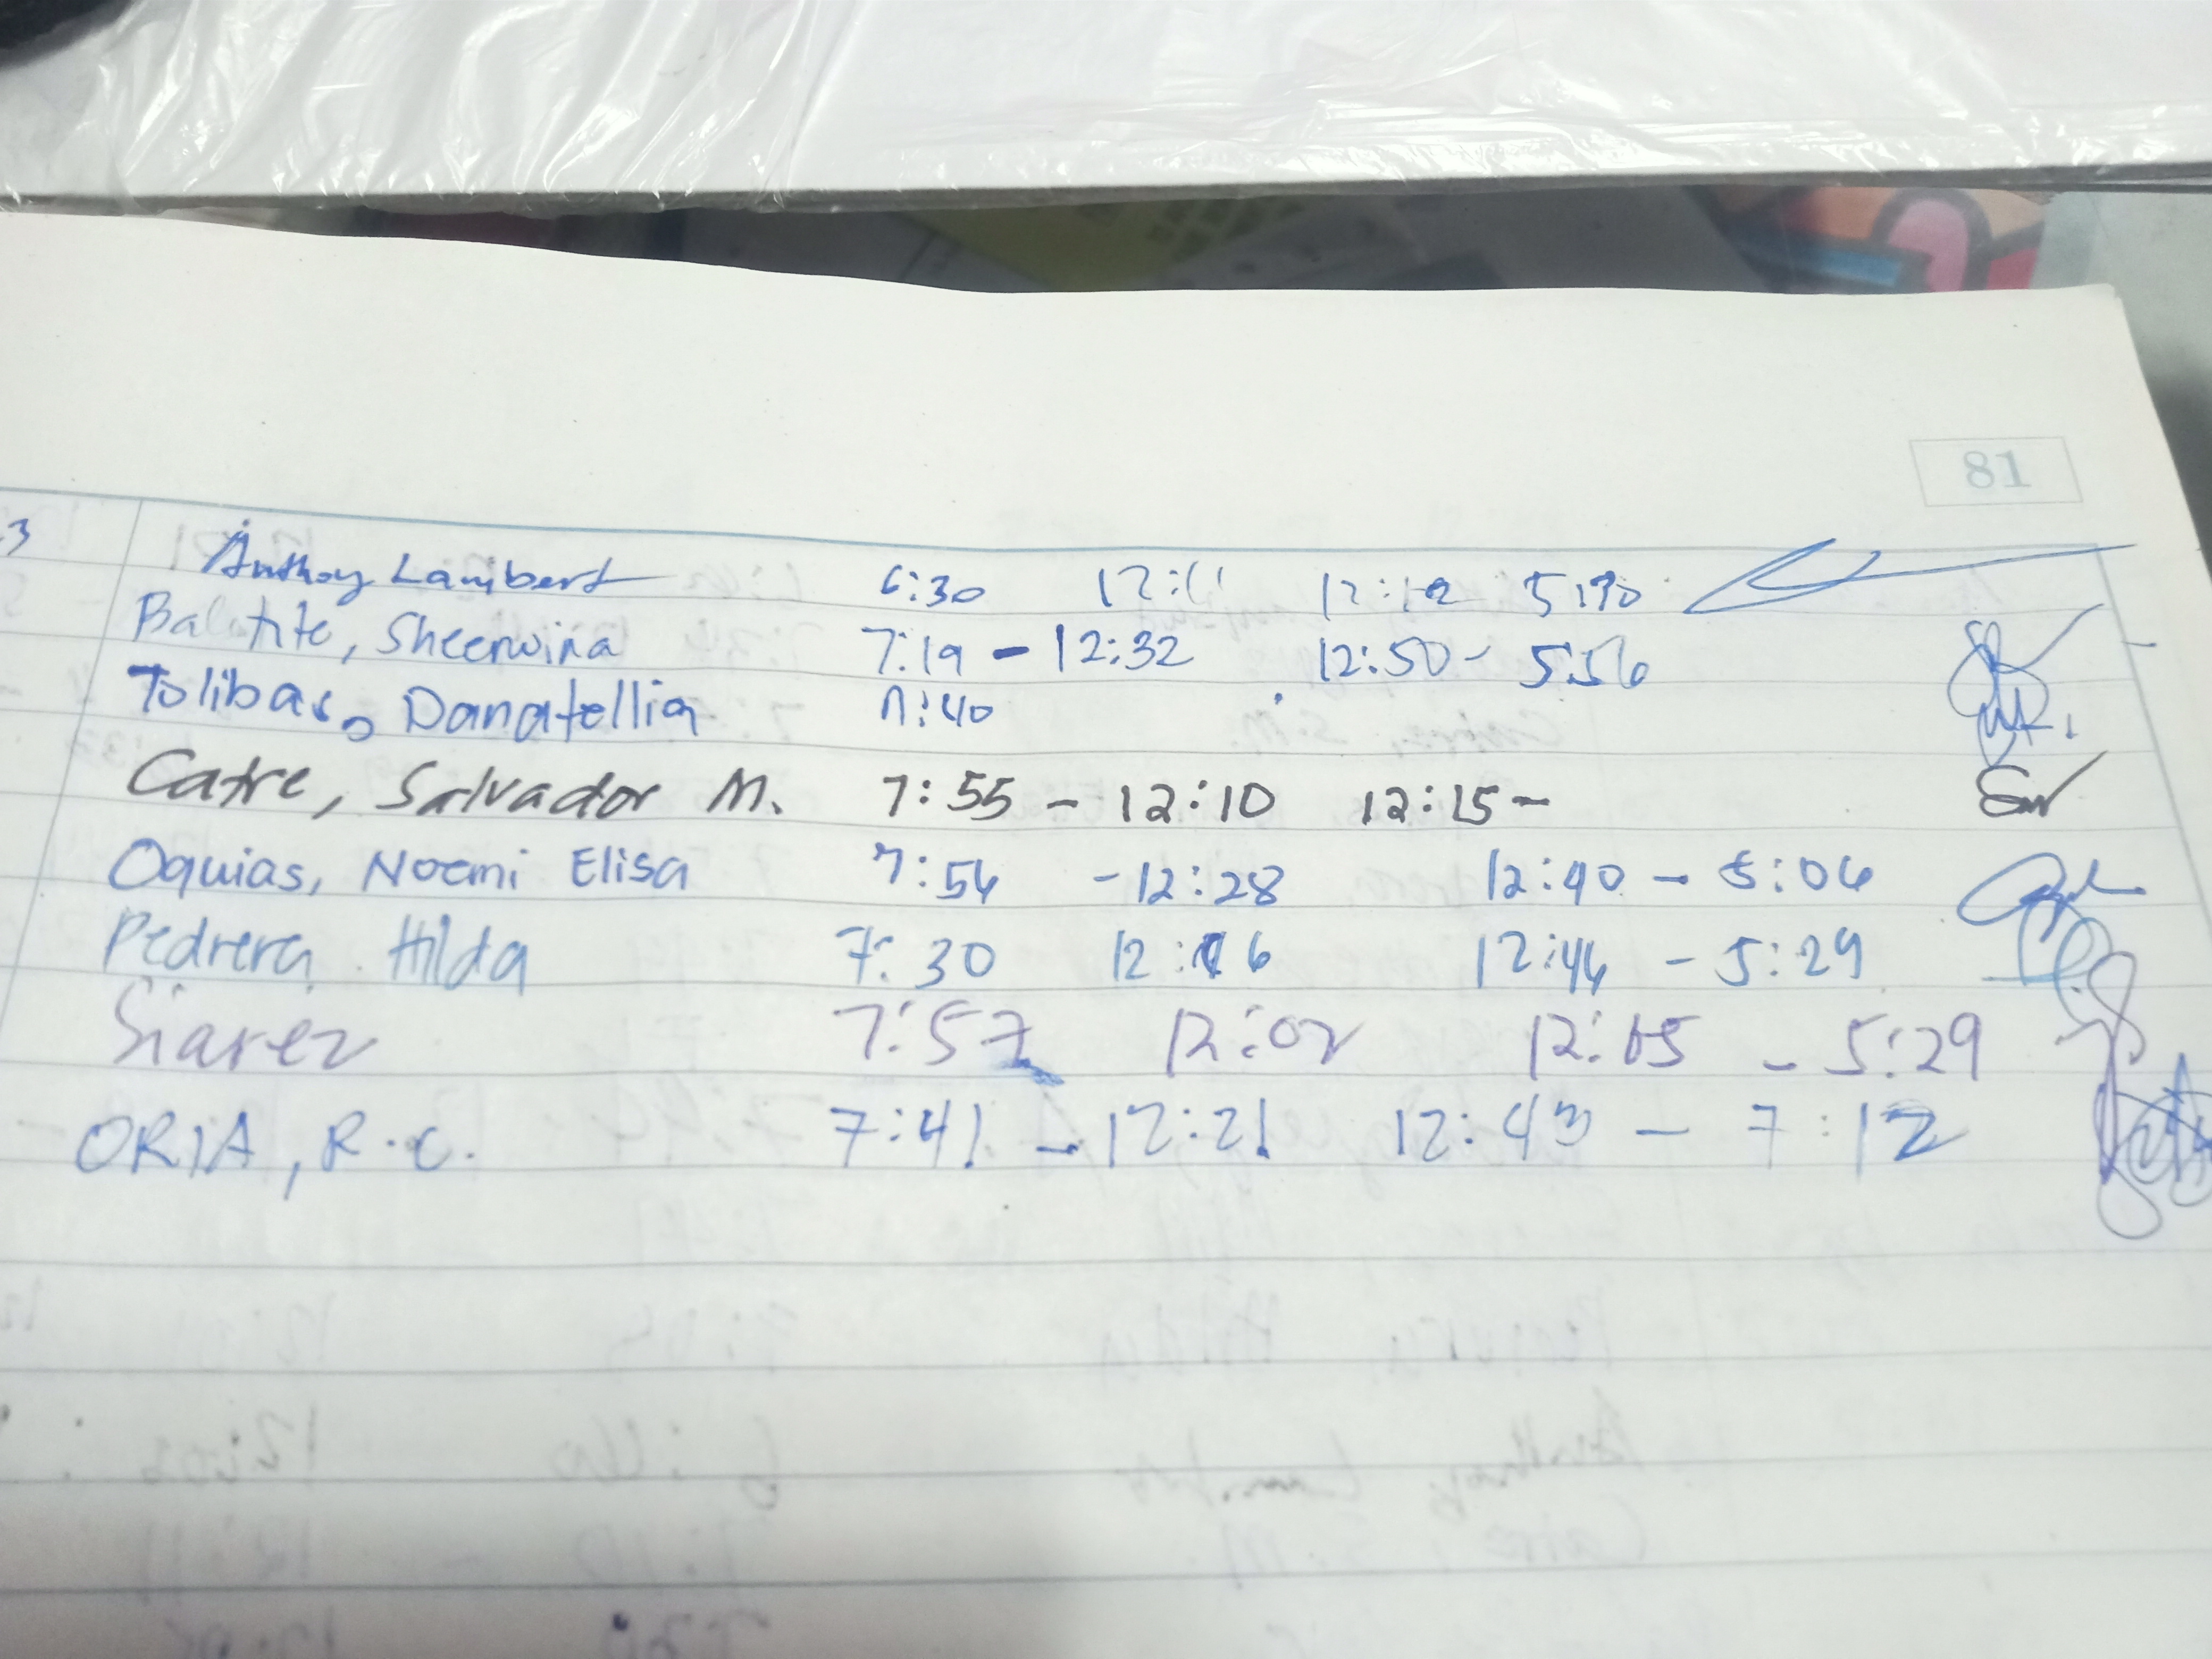 81
3 Anthony Lambert 6:30 12:11 12:12 5:30
Balatite, Sheerwina 7:19 - 12:32 12:50 - 5:56
Tolibas, Danatellia 7:40
Catre, Salvador M. 7:55 - 12:10 12:15 -
Oquias, Noemi Elisa 7:54 - 12:28 12:40 - 5:06
Pedrera Hilda 7:30 12:16 12:46 - 5:29
Siarez 7:57 12:02 12:05 - 5:29
ORIA, R.C. 7:41 - 12:21 12:43 - 7:12